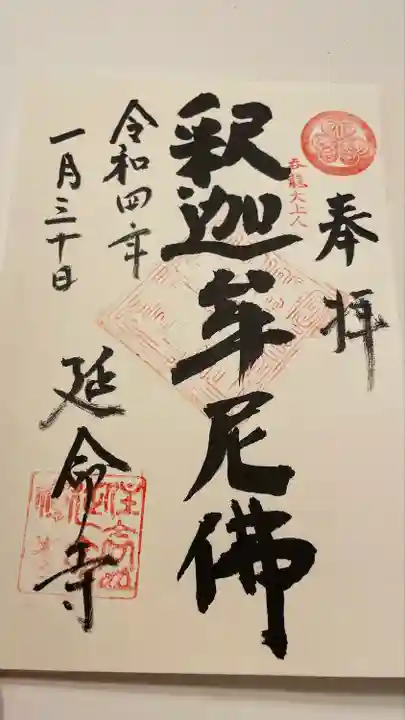 奉拝
呑龍大上人
釈迦牟尼佛
令和四年
一月三十日
延命寺